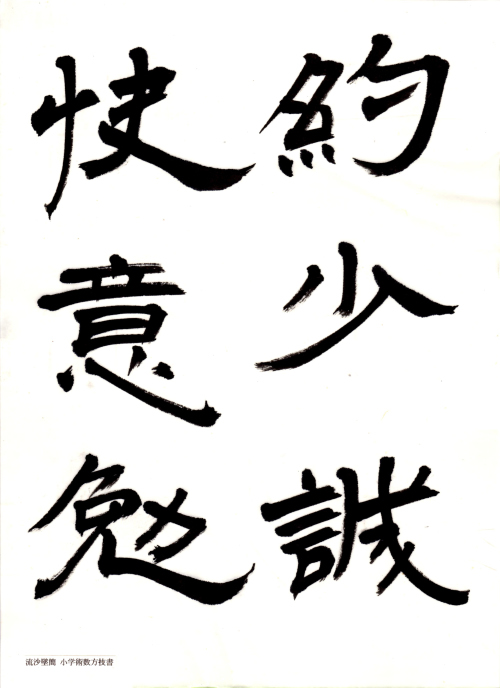 約少誠
快意勉
流沙墜簡 小学術数方技書